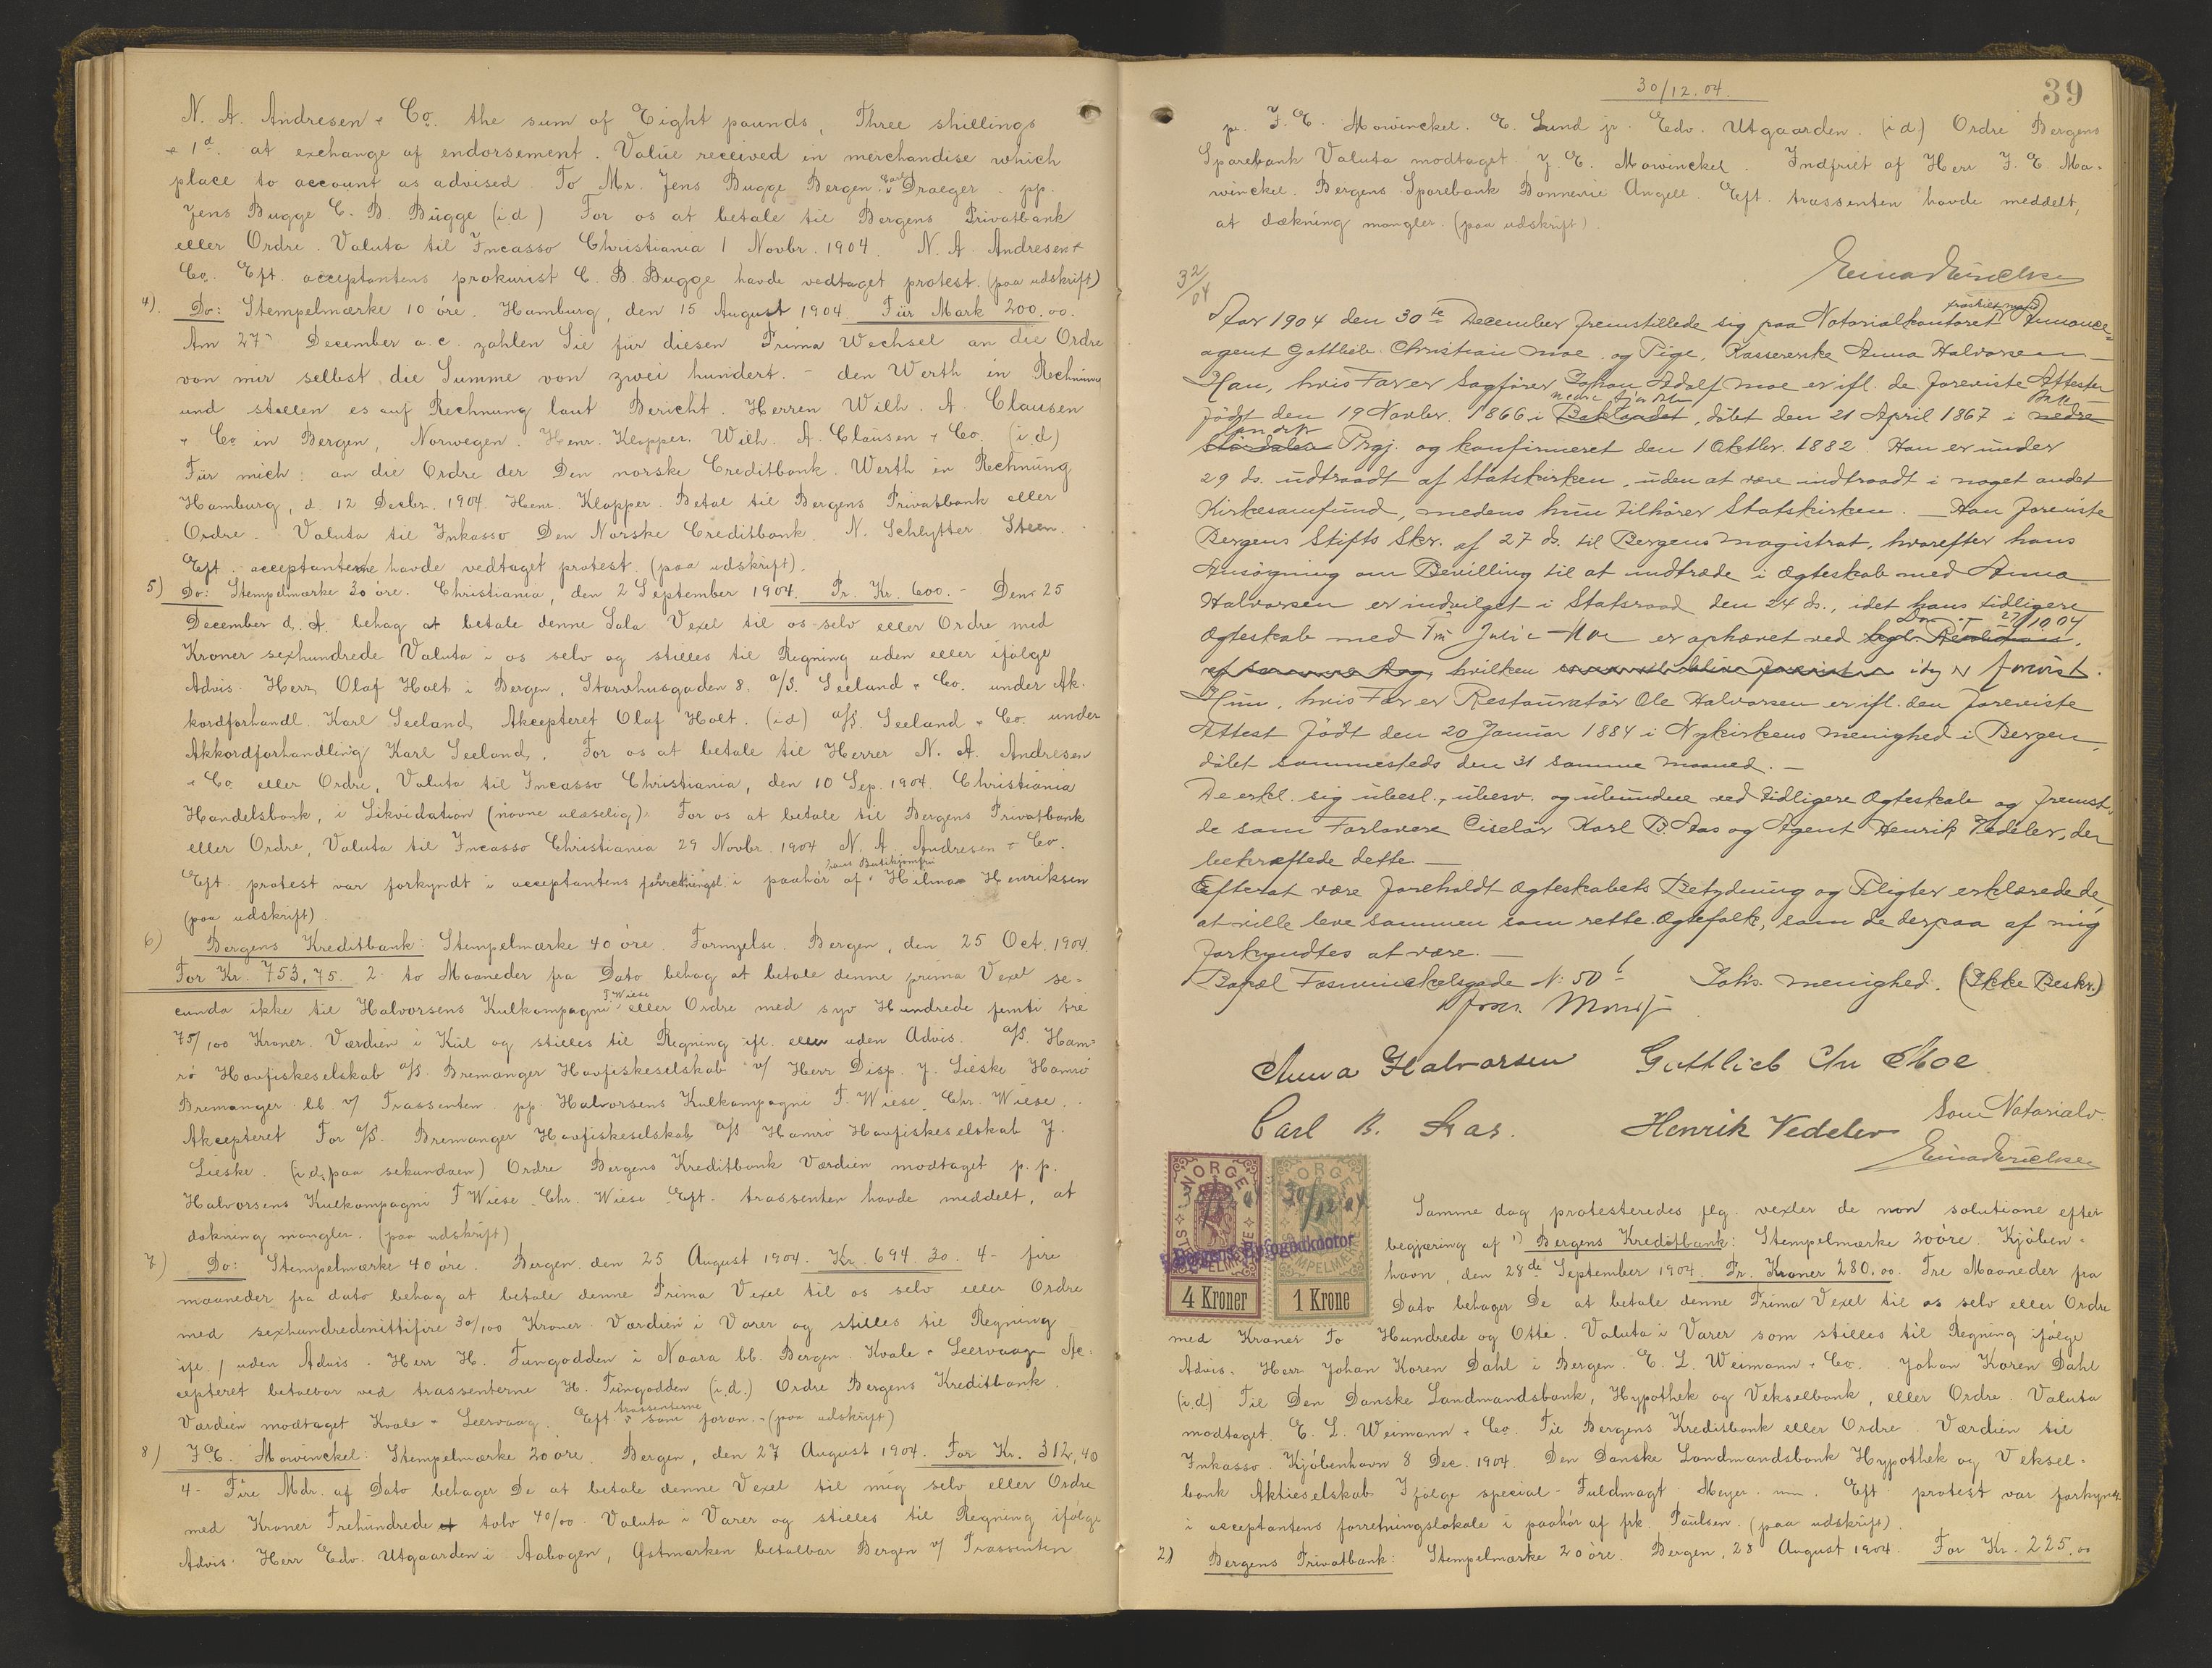 N. A. Andresen & Co. the sum of Eight pounds, Three shillings
& 1d. at exchange of endorsement. Value received in merchandise which
place to account as advised. To Mr. Jens Bugge Bergen. Carl Draeger - pp.
Jens Bugge C. B. Bugge (i d) For os at betale til Bergens Privatbank
eller Ordre. Valuta til Incasso Christiania 1 Novbr. 1904. N. A. Andresen &
Co. Eft. acceptantens prokurist C. B. Bugge havde vedtaget protest. (paa udskrift)
4). Do: Stempelmærke 10 öre. Hamburg, den 15 August 1904. Für Mark 200.00.
Am 27. December a.c. zahlen Sie für diesen Prima Wechsel an die Ordre
von mir selbst die Summe von zwei hundert. - den Werth in Rechnung
und stellen es auf Rechnung laut Bericht. Herren Wilh. A. Clausen
& Co in Bergen, Norwegen. Henr. Klopper. Wilh. A. Clausen & Co. (i.d)
Für mich: an die Ordre der Den norske Creditbank. Werth in Rechnung
Hamburg, d. 12 Decbr. 1904. Henr. Klopper. Betal til Bergens Privatbank eller
Ordre. Valuta til Inkasso Den Norske Creditbank N. Schlytter Steen.
Eft. acceptanterne havde vedtaget protest. (paa udskrift).
5) Do: Stempelmærke 30 öre. Christiania, den 2 September 1904. Pr. Kr. 600. - Den 25
December d. A. behag at betale denne Sola Vexel til os selv eller Ordre med
Kroner sexhundrede Valuta i os selv og stilles til Regning uden eller ifölge
Advis. Herr Olaf Holt i Bergen, Starvhusgaden 8. a/S. Seeland & Co. under Ak-
kordforhandl. Karl Seeland, Akcepteret Olaf Holt. (i d) a/S. Seeland & Co. under
Akkordforhandling Karl Seeland. For os at betale til Herrer N. A. Andresen
& Co. eller Ordre, Valuta til Incasso Christiania, den 10 Sep. 1904. Christiania
Handelsbank, i Likvidation (navne ulæselig). For os at betale til Bergens Privatbank
eller Ordre, Valuta til Incasso Christiania 29 Novbr. 1904 N. A. Andresen & Co.
Eft. protest var forkyndt i acceptantens forretningsl. i paahör af hans Butikjomfru Hilma Henriksen
(paa udskrift).
6) Bergens Kreditbank: Stempelmærke 40 öre. Fornyelse. Bergen, den 25 Oct. 1904.
For Kr. 753,75. 2 - to Maaneder fra Dato behag at betale denne prima Vexel se-
cunda ikke til Halvorsens Kulkompagni F Wiese eller Ordre med syv Hundrede femti tre
75/100 Kroner. Værdien i Kul og stilles til Regning ifl. eller uden Advis. a/S. Ham-
rö Havfiskeselskab a/S. Bremanger Havfiskeselskab v/ Herr Disp. J. Lieske Hamrö
Bremanger bb. v/ Trassenten. pp. Halvorsens Kulkompagni F. Wiese. Chr. Wiese.
Akcepteret For a/S. Bremanger Havfiskeselskab a/S Hamrö Havfiskeselskab J.
Lieske. (i d, paa sekundaen) Ordre Bergens Kreditbank Værdien modtaget p. p.
Halvorsens Kulkompagni F Wiese Chr. Wiese Eft. trassenten havde meddelt, at
dækning mangler. (paa udskrift)
7) Do: Stempelmærke 40 öre. Bergen den 25 August 1904. Kr. 694.30. 4 - fire
maaneder fra dato behag at betale denne Prima Vexel til os selv eller Ordre
med sexhundredenittifire 30/100 Kroner. Værdien i Varer og stilles til Regning
ifl. / uden Advis. Herr H. Tungodden i Naara bb. Bergen. Kvale & Leervaag Ac-
cepteret betalbar ved trassenterne H. Tungodden (i.d.) Ordre Bergens Kreditbank.
Værdien modtaget Kvale & Leervaag. Eft. trassenterne som foran. (paa udskrift)
8) J E. Mowinckel: Stempelmærke 20 öre. Bergen, den 27 August 1904. For Kr. 312,40
4 - Fire Mdr. af Dato behager De at betale denne Vexel til mig selv eller Ordre
med Kroner Trehundrede tolv 40/00. Valuta i Varer og stilles til Regning ifölge
Advis. Herr Edv. Utgaarden i Aabogen, Østmarken betalbar Bergen v/ Trassenten
30/12.04.
39
pr. J. E. Mowinckel. E. Lund jr. Edv. Utgaarden. (i d) Ordre Bergens
Sparebank Valuta modtaget. J. E. Mowinckel. Indfriet af Herr J. E Mo-
winckel. Bergens Sparebank Bonnevie Angell. Eft. trassenten havde meddelt,
at dækning mangler. (paa udskrift).
32/04
Aar 1904 den 30te December fremstillede sig paa Notarialkontoret fraskilt mand Annonce-
agent Gottlieb Christian Moe og Pige, Kassererske Anna Halvorsen -
Han, hvis Far er Sagförer Johan Adolf Moe er ifl. de foreviste Attester
födt den 19 Novbr. 1866 i Baklandet, döbt den 21 April 1867 i nedre
Stördalen Prgj. og konfirmeret den 1 Oktbr. 1882. Han er under
29 ds. udtraadt af Statskirken, uden at være indtraadt i noget andet
Kirkesamfund, medens hun tilhører Statskirken. - Han foreviste
Bergens Stifts Skr. af 27 ds. til Bergens Magistrat, hvorefter hans
Ansögning om Bevilling til at indtræde i Ægteskab med Anna
Halvorsen er indvilget i Statsraad den 24 ds., idet hans tidligere
Ægteskab med Julie Moe er ophævet ved 27/10 04
hvilken idag er forevist.
Hun, hvis Far er Restauratör Ole Halvorsen er ifl. den foreviste
Attest födt den 20 Januar 1884 i Nykirkens Menighed i Bergen,
döbt sammesteds den 31 samme Maaned. -
De erkl. sig ubesl., ubesv. og ubundne ved tidligere Ægteskab og fremst.
de som Forlovere Ciselör Karl B. Aas og Agent Henrik Vedeler, der
bekræftede dette. -
Efterat være foreholdt Ægteskabets Betydning og Pligter erklærede de,
at ville leve sammen som rette Ægtefolk, som de derpaa af mig
forkyndtes at være. -
Bopæl Foswinckelsgade N: 50 Joh's. Menighed. (Ikke Beskr.)
Anna Halvorsen Gottlieb Chr Moe
Carl B. Aas. Henrik Vedeler Som Notarialv.
NORGE STEMPELMERKE 4 Kroner
NORGE 30/12 04 STEMPELMERKE 1 Krone
Bergens Byfogdkontor
Samme dag protesteredes flg. vexler de non solutione efter
begjæring af 1) Bergens Kreditbank: Stempelmærke 20 öre. Kjöben-
havn, den 28de September 1904. Pr. Kroner 280.00. Tre Maaneder fra
Dato behager De at betale denne Prima Vexel til os selv eller Ordre
med Kroner To Hundrede og Otti. Valuta i Varer som stilles til Regning ifölge
Advis. Herr Johan Koren Dahl i Bergen. E. L. Weimann & Co. Johan Koren Dahl
(i.d.) Til Den Danske Landmandsbank, Hypothek og Vekselbank, eller Ordre. Valuta
modtaget. E. L. Weimann & Co. Til Bergens Kreditbank eller Ordre. Værdien til
Inkasso. Kjöbenhavn 8 Dec. 1904. Den Danske Landmandsbank Hypothek og Veksel-
bank Aktieselskab Ifölge special-Fuldmagt Meyer. Eft. protest var forkyndt
i acceptantens forretningslokale i paahör af frk. Paulsen. (paa udskrift).
2) Bergens Privatbank: Stempelmærke 20 öre. Bergen, 28 August 1904. For Kr. 225.00